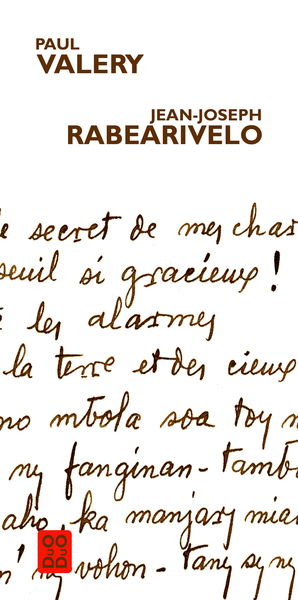 PAUL
VALERY
JEAN-JOSEPH
RABEARIVELO
le secret de mes char
seuil si gracieux !
les alarmes
la terre et des cieux
no mbola soa toy n
ny fanginan - tamb
aho, ka manjary mia
n' ny vohon - tany sy ny
DUO
DUO